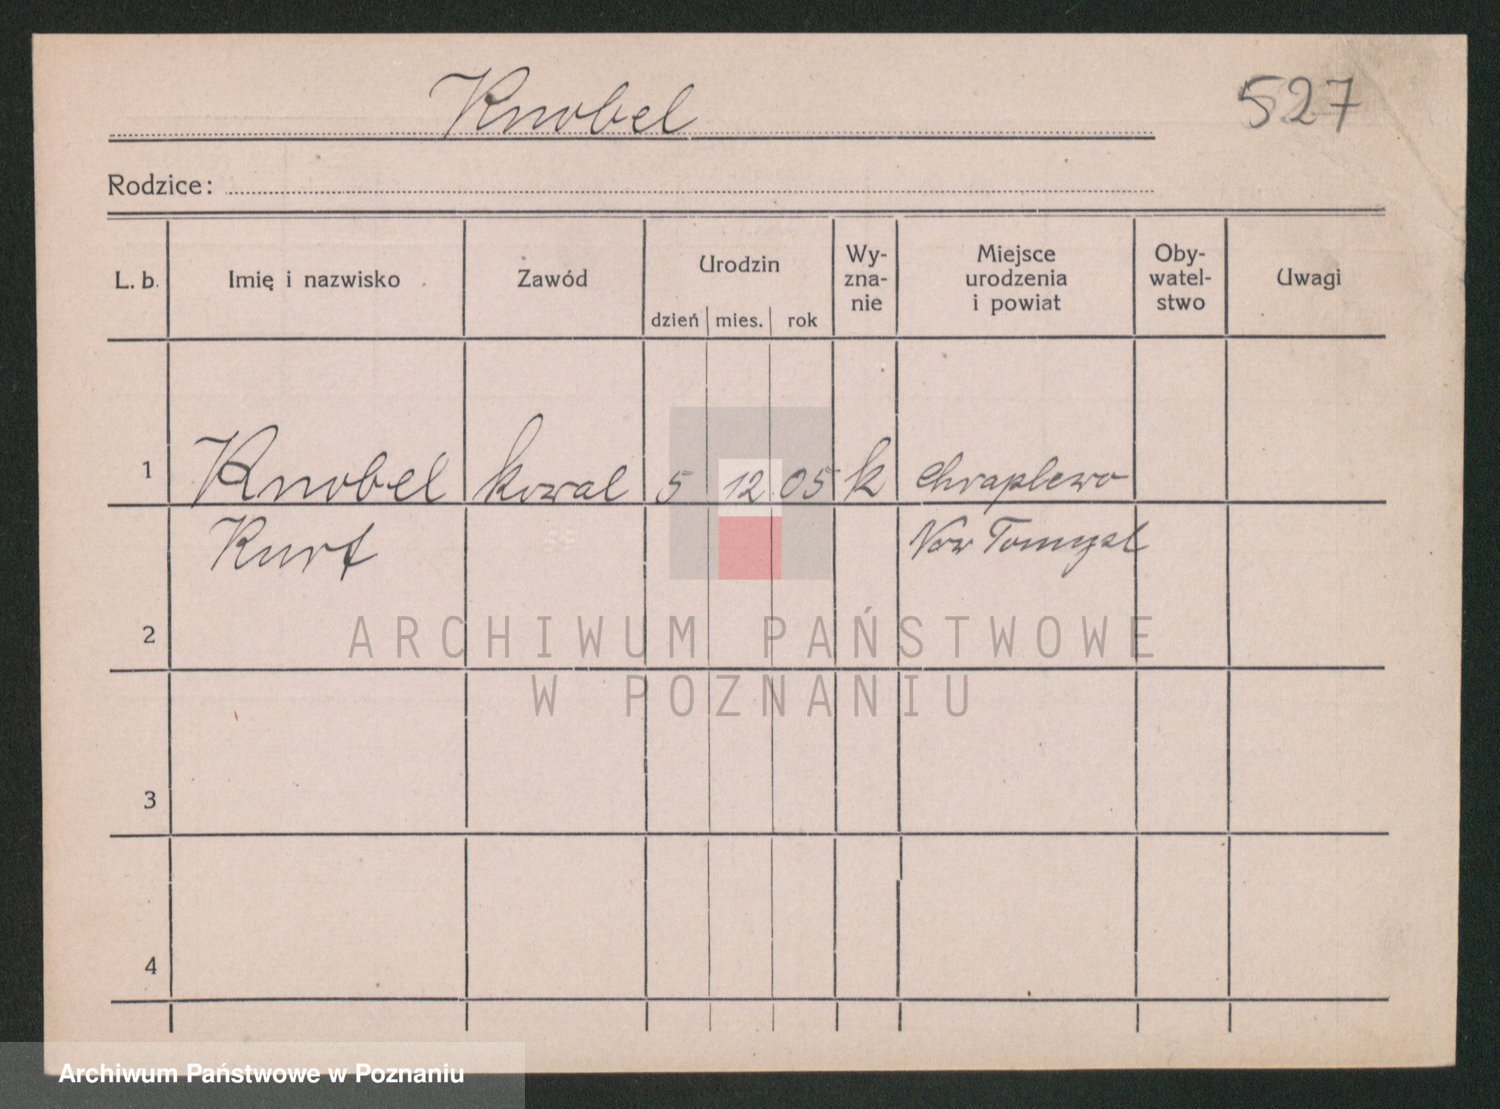 Knobel
527
Rodzice:
L. b. Imię i nazwisko Zawód Urodzin dzień mies. rok Wy-zna-nie Miejsce urodzenia i powiat Oby-watel-stwo Uwagi
1 Knobel kowal 5 12 05 k Chraplewo
Kurt Now Tomysl
2
ARCHIWUM PAŃSTWOWE
W POZNANIU
3
4
Archiwum Państwowe w Poznaniu